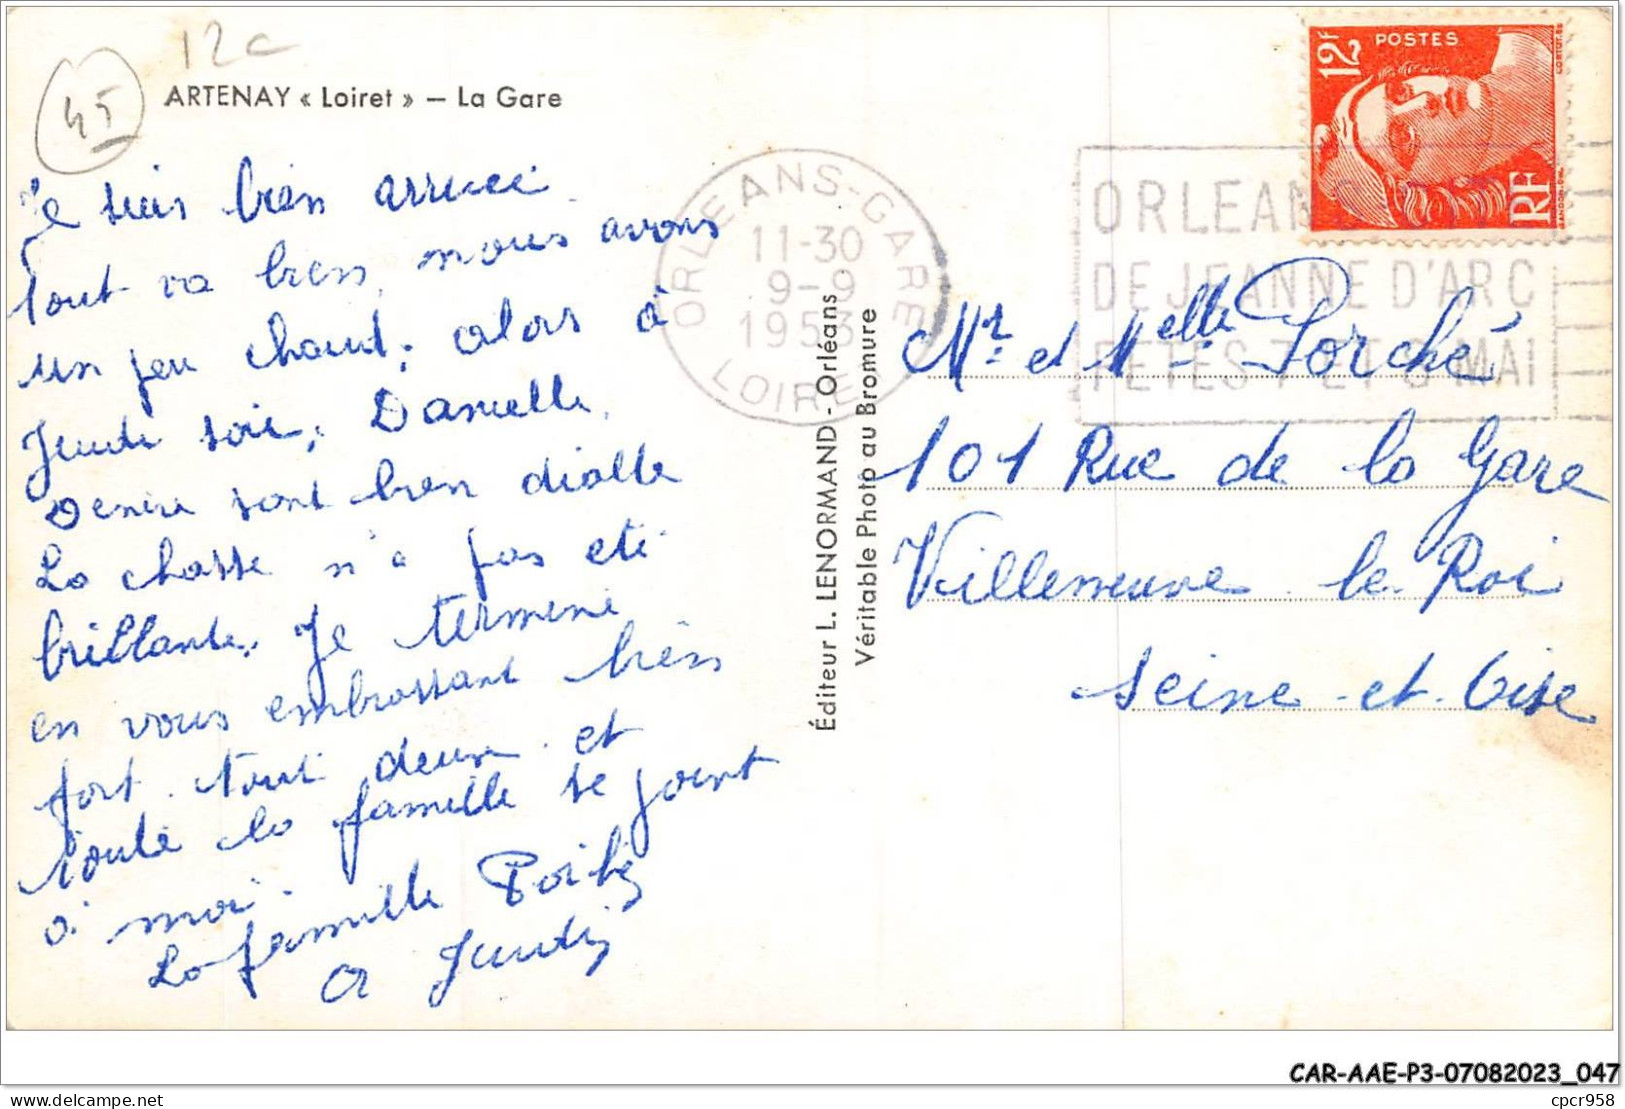 12c
45
ARTENAY « Loiret » — La Gare
Je suis bien arrivée
Tout va bien, nous avons
un peu chaud, alors à
Jeudi soir, Danielle,
Denise sont bien
La chasse n'a pas été
brillante. Je termine
en vous embrassant bien
fort tout deux et
toute la famille se joint
à moi.
La famille
A Jeudi
Éditeur L. LENORMAND - Orléans
Véritable Photo au Bromure
ORLEANS-GARE
11-30
9-9
1953
LOIRET
ORLEANS
DE JEANNE D'ARC
FETES 7 ET 8 MAI
12F
POSTES
RF
Mr et Melle Porché
101 Rue de la Gare
Villeneuve le Roi
Seine et Oise
CAR-AAE-P3-07082023_047
cpcr958